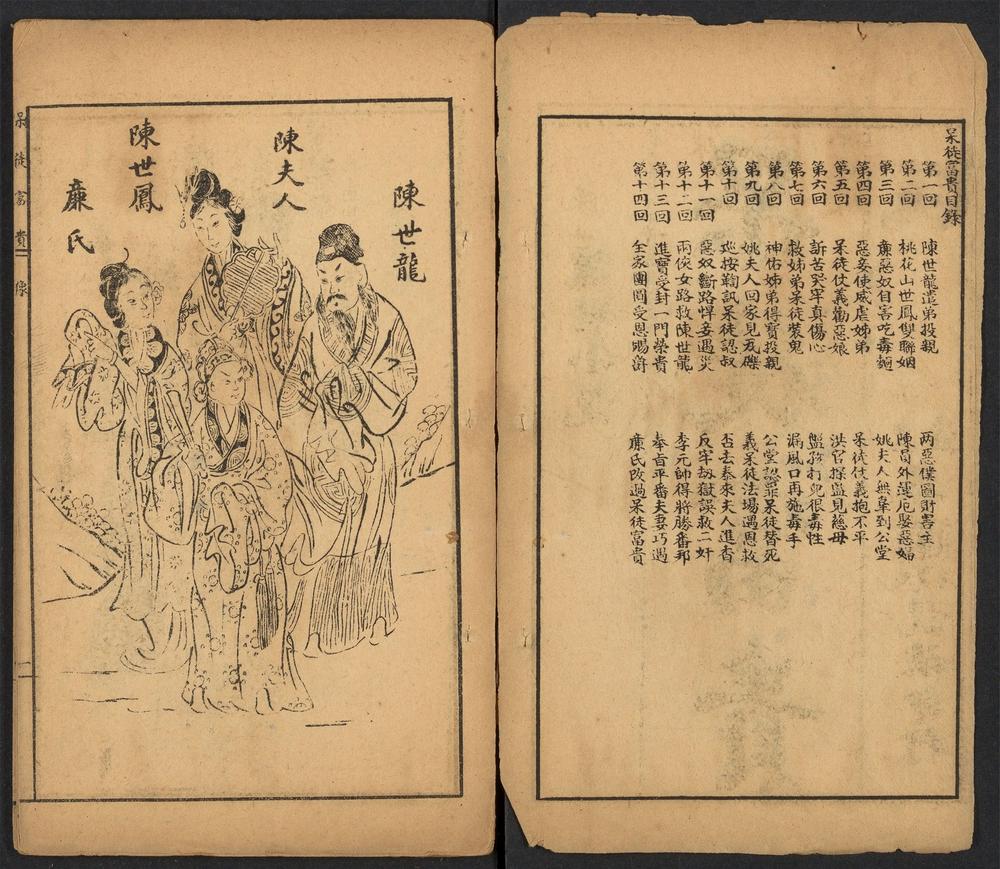 呆徒富貴目錄
第一回 陳世龍遣弟投親 两惡僕圖財害主
第二回 桃花山世鳳雙聯姻 陳昌外運厄娶惡婦
第三回 亷惡奴自害吃毒麵 姚夫人無辜到公堂
第四回 惡妾使威虐姊弟 呆徒仗義抱不平
第五回 呆徒仗義勸惡娘 洪官探監見慈母
第六回 訴苦哭牢真傷心 盤孩打兒狠毒性
第七回 救姊弟呆徒裝鬼 漏風口再施毒手
第八回 神佑姊弟得寳投親 公堂認罪呆徒替死
第九回 姚夫人回家見瓦礫 義呆徒法場遇恩救
第十回 巡按鞫訊呆徒認叔 否去泰來夫人進香
第十一回 惡奴斷路悍妾遇災 反牢刼獄誤救二奸
第十二回 兩俠女路救陳世龍 李元帥得將勝番邦
第十三回 進寳受封一門榮貴 奉旨平番夫妻巧遇
第十四回 全家團圓受恩賜爵 亷氏改過呆徒富貴
陳世龍
陳夫人
陳世鳳
亷氏
呆徒富貴 像
二